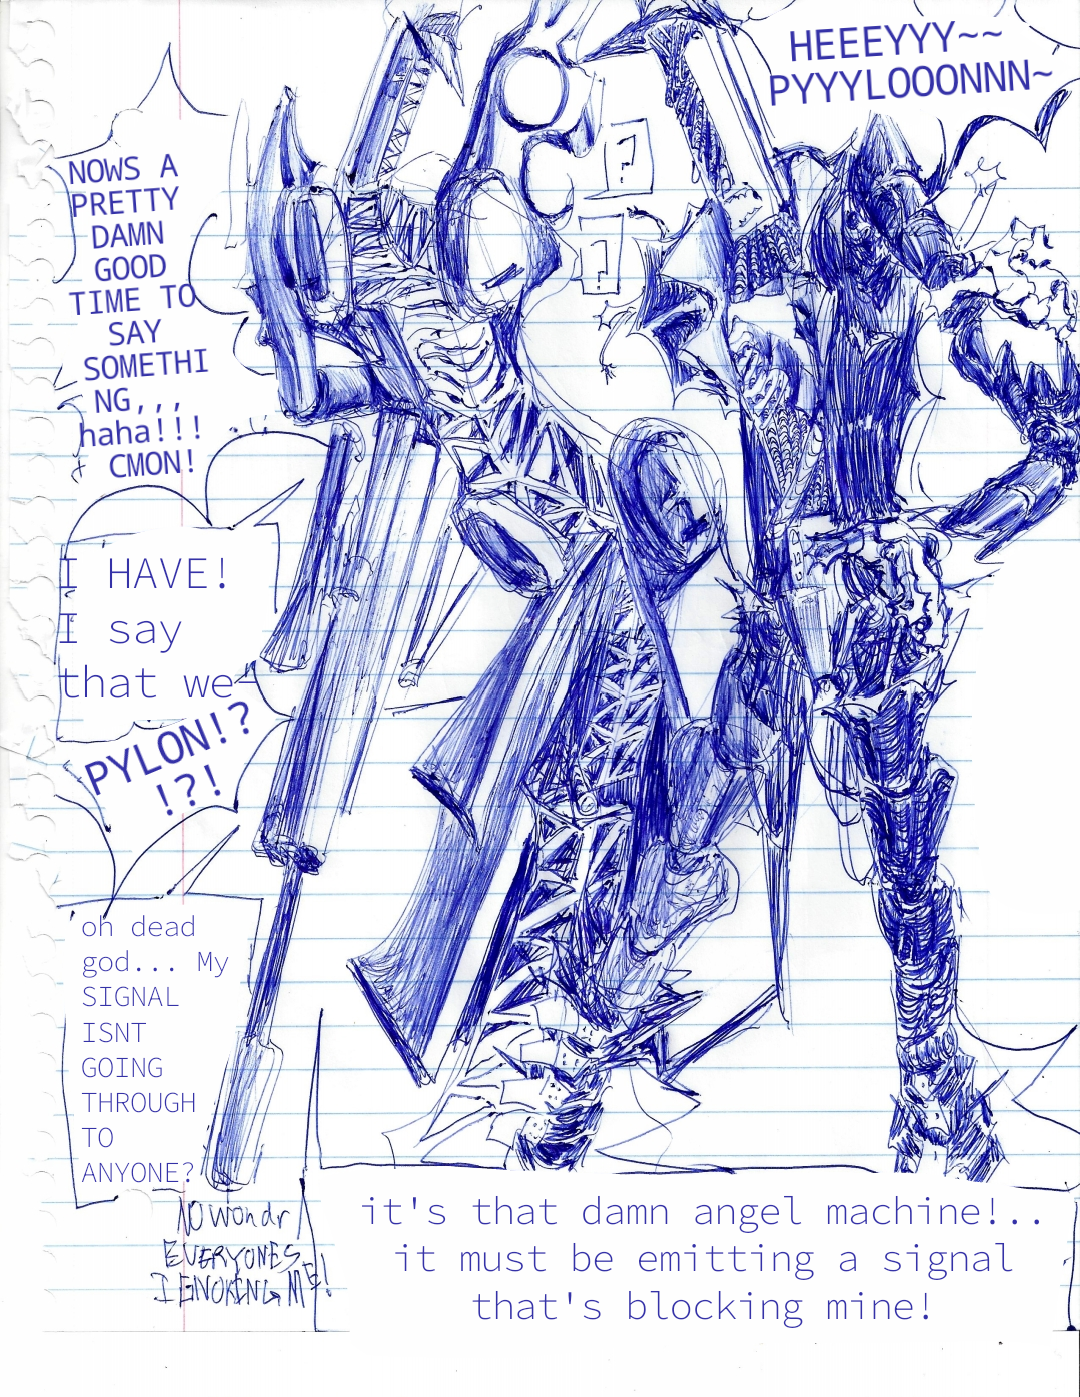 HEEEYYY~~
PYYYLOOONNN~
?
?
NOWS A
PRETTY
DAMN
GOOD
TIME TO
SAY
SOMETHI
NG,,,
haha!!!
CMON!
I HAVE!
I say
that we-
PYLON!?
!?!
oh dead
god... My
SIGNAL
ISNT
GOING
THROUGH
TO
ANYONE?
NO wondr
EVERYONES
IGNOKENG ME!
it's that damn angel machine!..
it must be emitting a signal
that's blocking mine!